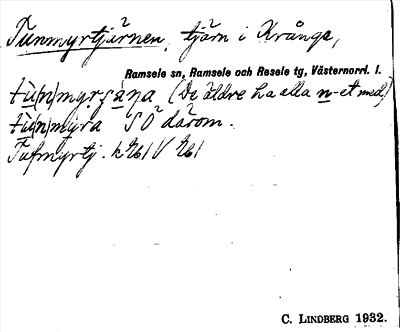 Tunmyrtjärnen, tjärn i Krånge,
Ramsele sn, Ramsele och Resele tg, Västernorrl. l.
tù(n)myrʂána (De äldre ha alla n-et med)
tù(n)mýra SO därom.
Tufmyrtj.
C. LINDBERG 1932.